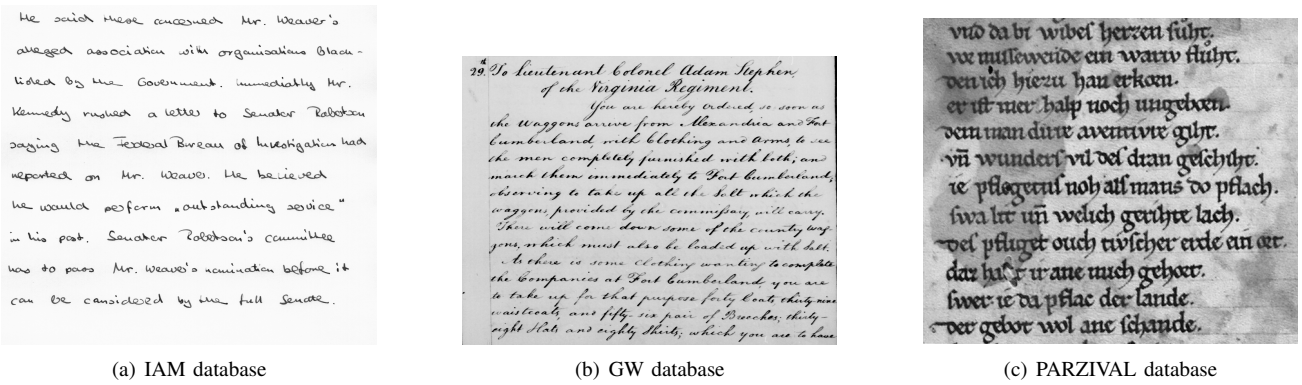 He said these concerned Mr. Weaver's
alleged association with organisations black-
listed by the Government. immediately Mr.
Kennedy rushed a letter to Senator Robertson
saying the Federal Bureau of Investigation had
reported on Mr. Weaver. He believed
he would perform "outstanding service"
in his post. Senator Robertson's committee
has to pass Mr. Weaver's nomination before it
can be considered by the full Senate.
(a) IAM database
29.th To Lieutenant Colonel Adam Stephen,
of the Virginia Regiment.
You are hereby ordered, so soon as
the Waggons arrive from Alexandria and Fort
Cumberland, with Clothing and Arms, to see
the men completely furnished with both; and
march them immediately to Fort Cumberland;
observing to take up all the Salt which the
waggons, provided by the commissary, will carry.
There will come down some of the country wag-
gons, which must also be loaded up with Salt.
As there is some clothing wanting to complete
the Companies at Fort Cumberland, you are
to take up for that purpose forty Coats, thirty-nine
waistcoats, and fifty-six pair of Breeches; thirty-
eight Hats and eighty Shirts; which you are to have
(b) GW database
vnd da bi wibes herzen suht.
ein wariv fluht.
den ich hiezu han erkorn.
er ist mer halp noch ungeborn.
dem man dirre aventivre giht.
vn̄ wunders vil des dran geschiht.
ie pflagens noh als mans do pflach.
swa lit un̄ welsch gerihte lach.
des pfliget ouch tivscher erde ein ort.
daz ir ane mich gehort.
swer ie da pflac der lande.
der gebot wol ane schande.
(c) PARZIVAL database